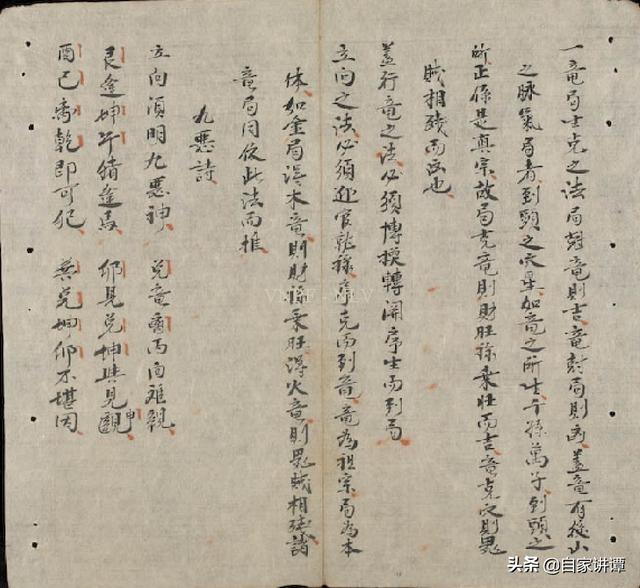 一竜局生克之法局剋竜則吉竜尅局則凶盖竜有後山
之脉氣局者到頭之穴星如竜之所生千孫萬子到頭之
所正係是真宗故局克竜則財旺祿乗壯而吉竜克穴則鬼
賊相殘而凶也
盖行竜之法必須博換轉開帝生而到局
立向之法必須迎官就祿克而到竜竜為祖宗局為本
体如金局得木竜則財祿乗旺得火竜則鬼賊相殘諸
竜局同依此法而推
九悪詩
立向須明九悪神 兌竜丙向难親
艮逢坤午猪逢馬 卯見兌坤巽見
酉巳乾即可犯 兌坤卯不堪因
VNPF - NLV
头条 @自家讲谭